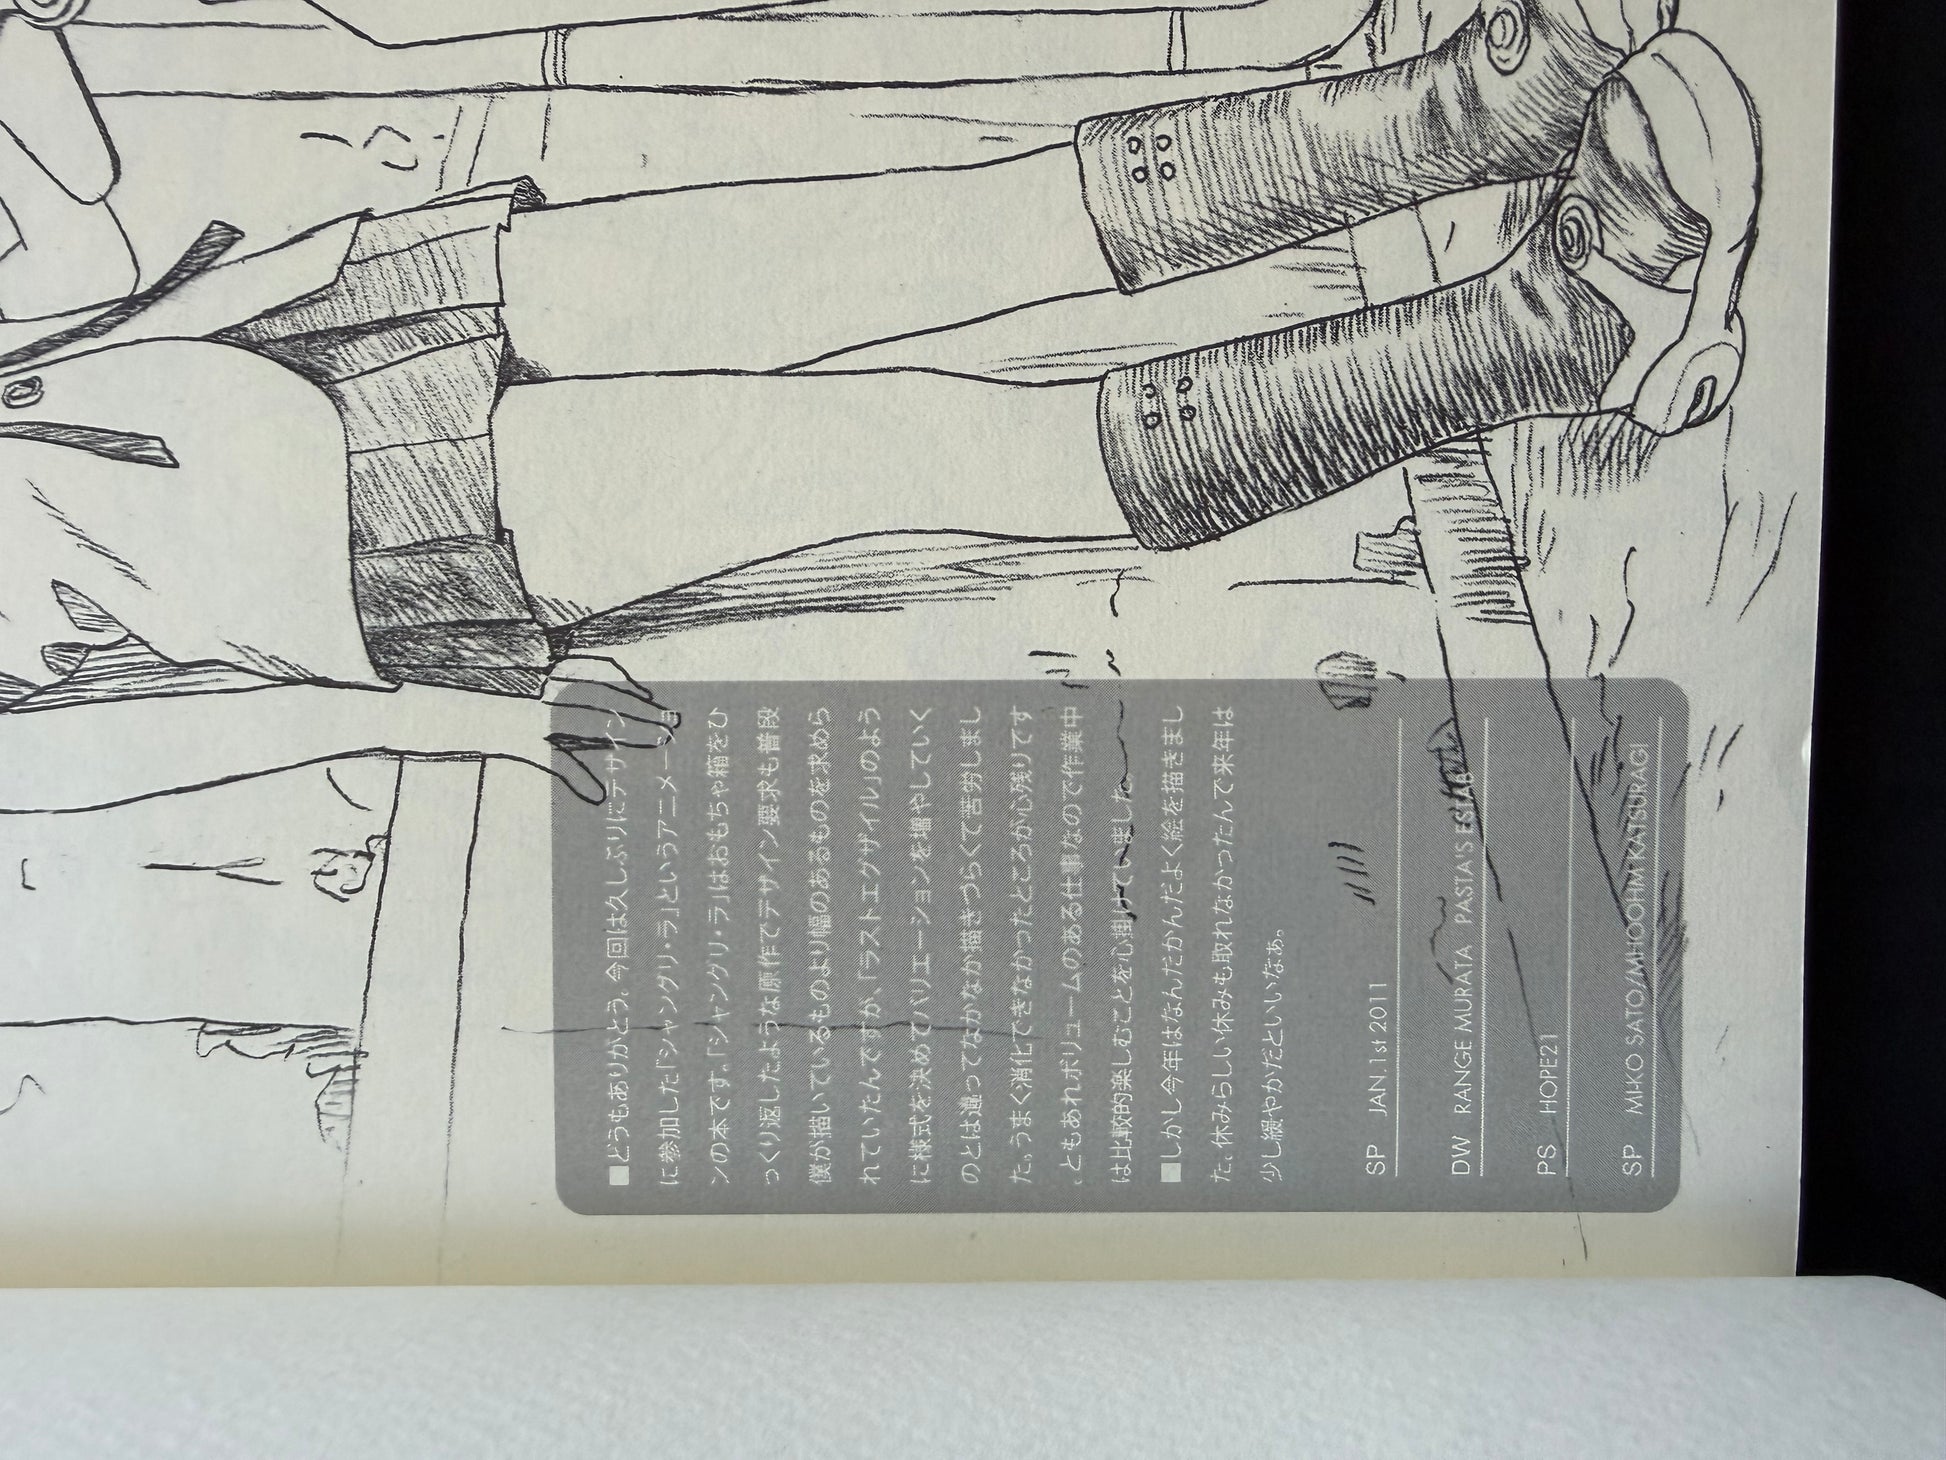 ■どうもありがとう。今回は久しぶりにデザイン
に参加した「シャングリ・ラ」というアニメーショ
ンの本です。「シャングリ・ラ」はおもちゃ箱をひ
っくり返したような原作でデザイン要求も普段
僕が描いているものより幅のあるものを求めら
れていたんですが、「ラストエグザイル」のよう
に様式を決めてバリエーションを増やしていく
のとは違ってなかなか描きづらくて苦労しまし
た。うまく消化できなかったところが心残りです
、ともあれボリュームのある仕事なので作業中
は比較的楽しむことを心掛けていました。
■しかし今年はなんだかんだよく絵を描きまし
た。休みらしい休みも取れなかったんで来年は
少し緩やかだといいなぁ。
SP JAN.1st 2011
DW RANGE MURATA PASTA'S ESTAB
PS HOPE21
SP MI-KO SATO/MHOOHM KATSURAGI